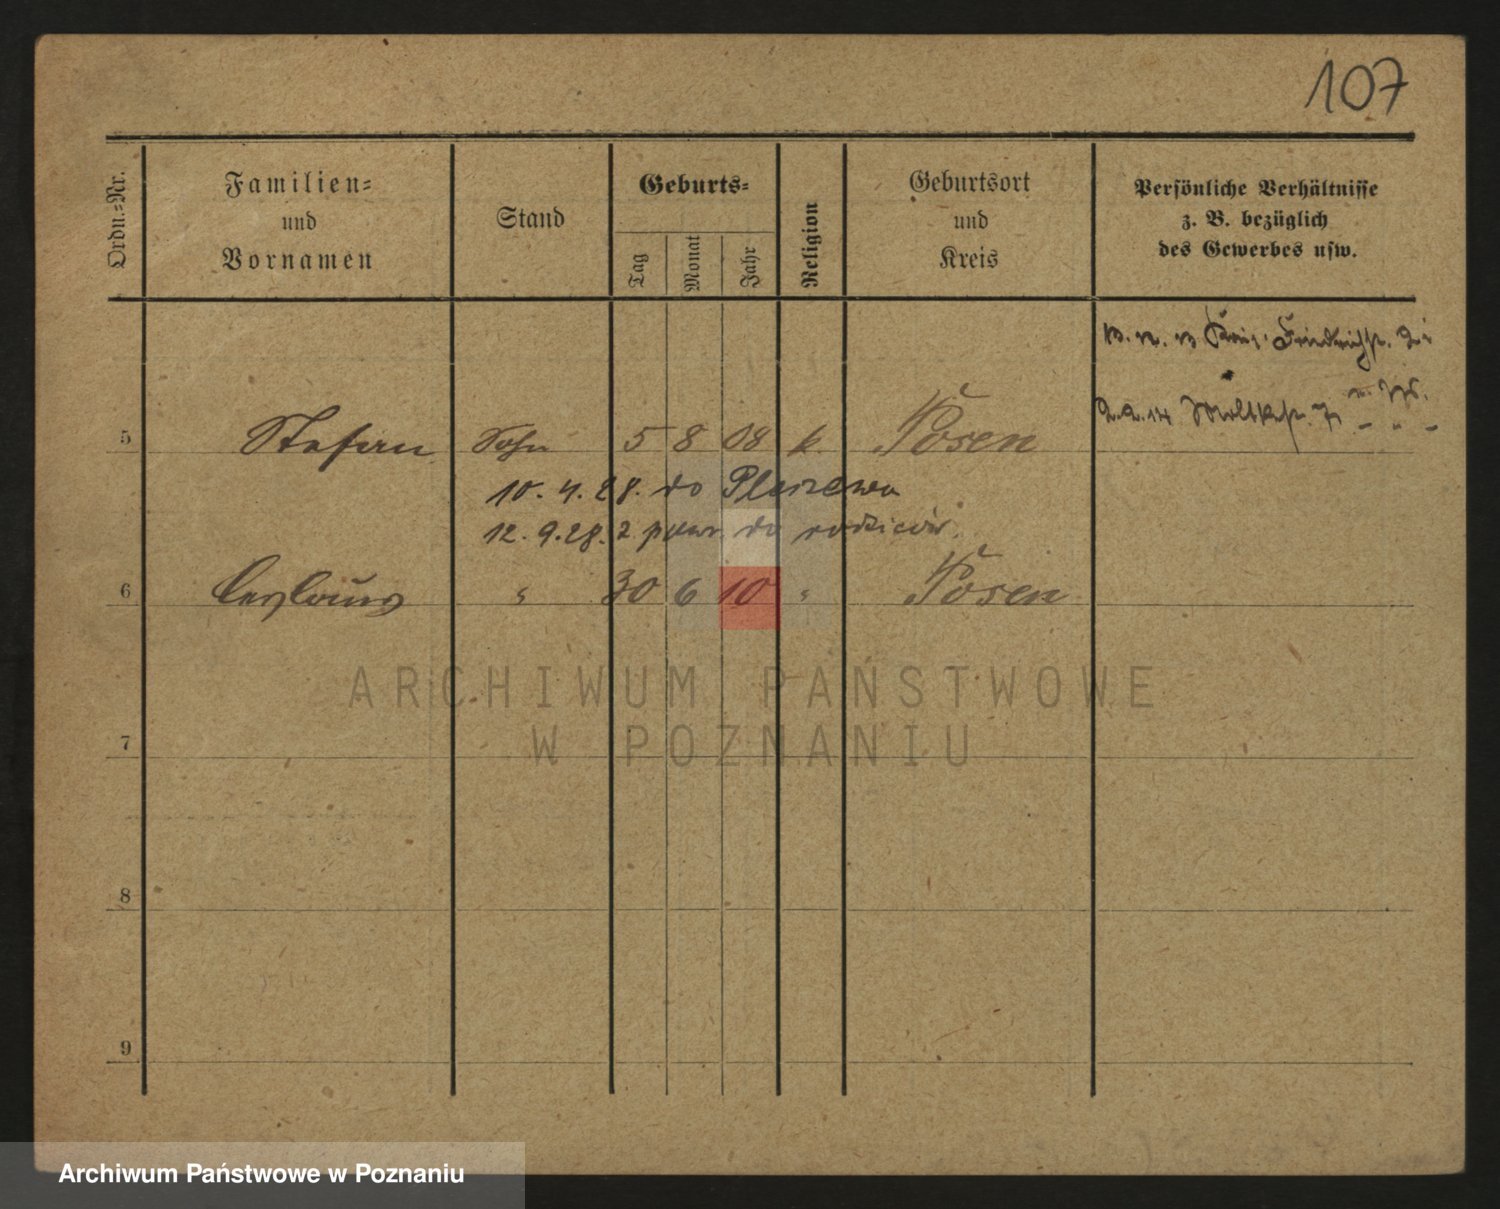 107
Ordn.-Nr.
Familien-
und
Vornamen
Stand
Geburts-
Tag
Monat
Jahr
Religion
Geburtsort
und
Kreis
Persönliche Verhältnisse
z. B. bezüglich
des Gewerbes usw.
Friedrichstr.
Moltkestr. 7
5 Stefan Sohn 5 8 08 k. Posen
10. 4. 28. do Pleszewa
12. 9. 28. z powr. do rodziców.
6 " 30 6 10 " Posen
ARCHIWUM PAŃSTWOWE
W POZNANIU
7
8
9
Archiwum Państwowe w Poznaniu